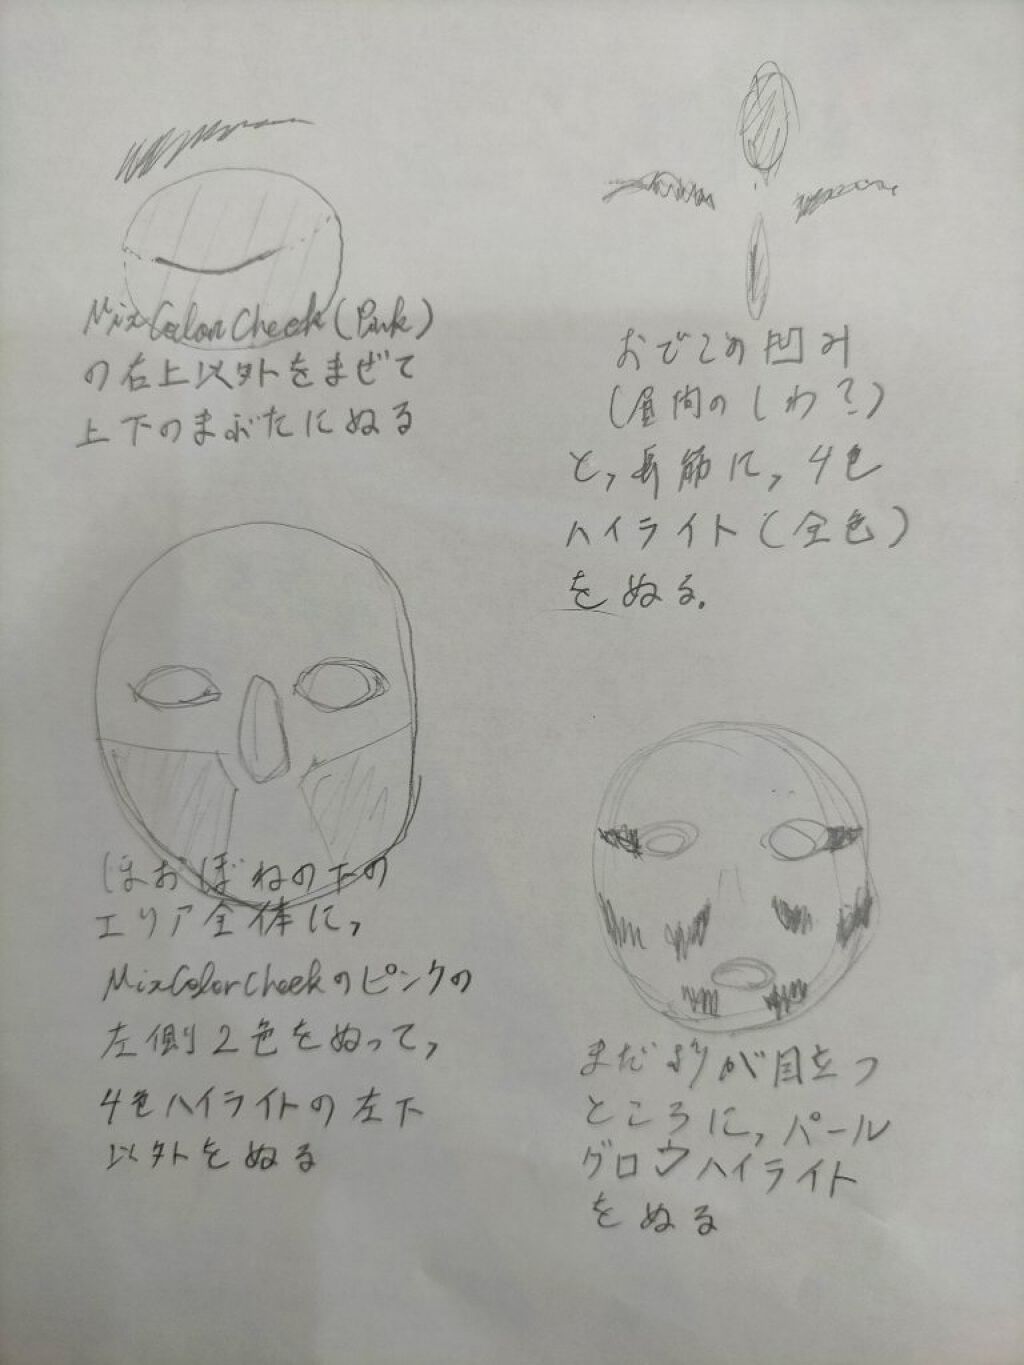 Mix Color Cheek (Pink)
の右上以外をまぜて
上下のまぶたにぬる
おでこの凹み
(眉間のしわ?)
と,鼻筋に,4色
ハイライト(全色)
をぬる.
ほおぼねの下の
エリア全体に,
Mix Color Cheekのピンクの
左側2色をぬって,
4色ハイライトの左下
以外をぬる
まだ影が目立つ
ところに,パール
グロウハイライト
をぬる